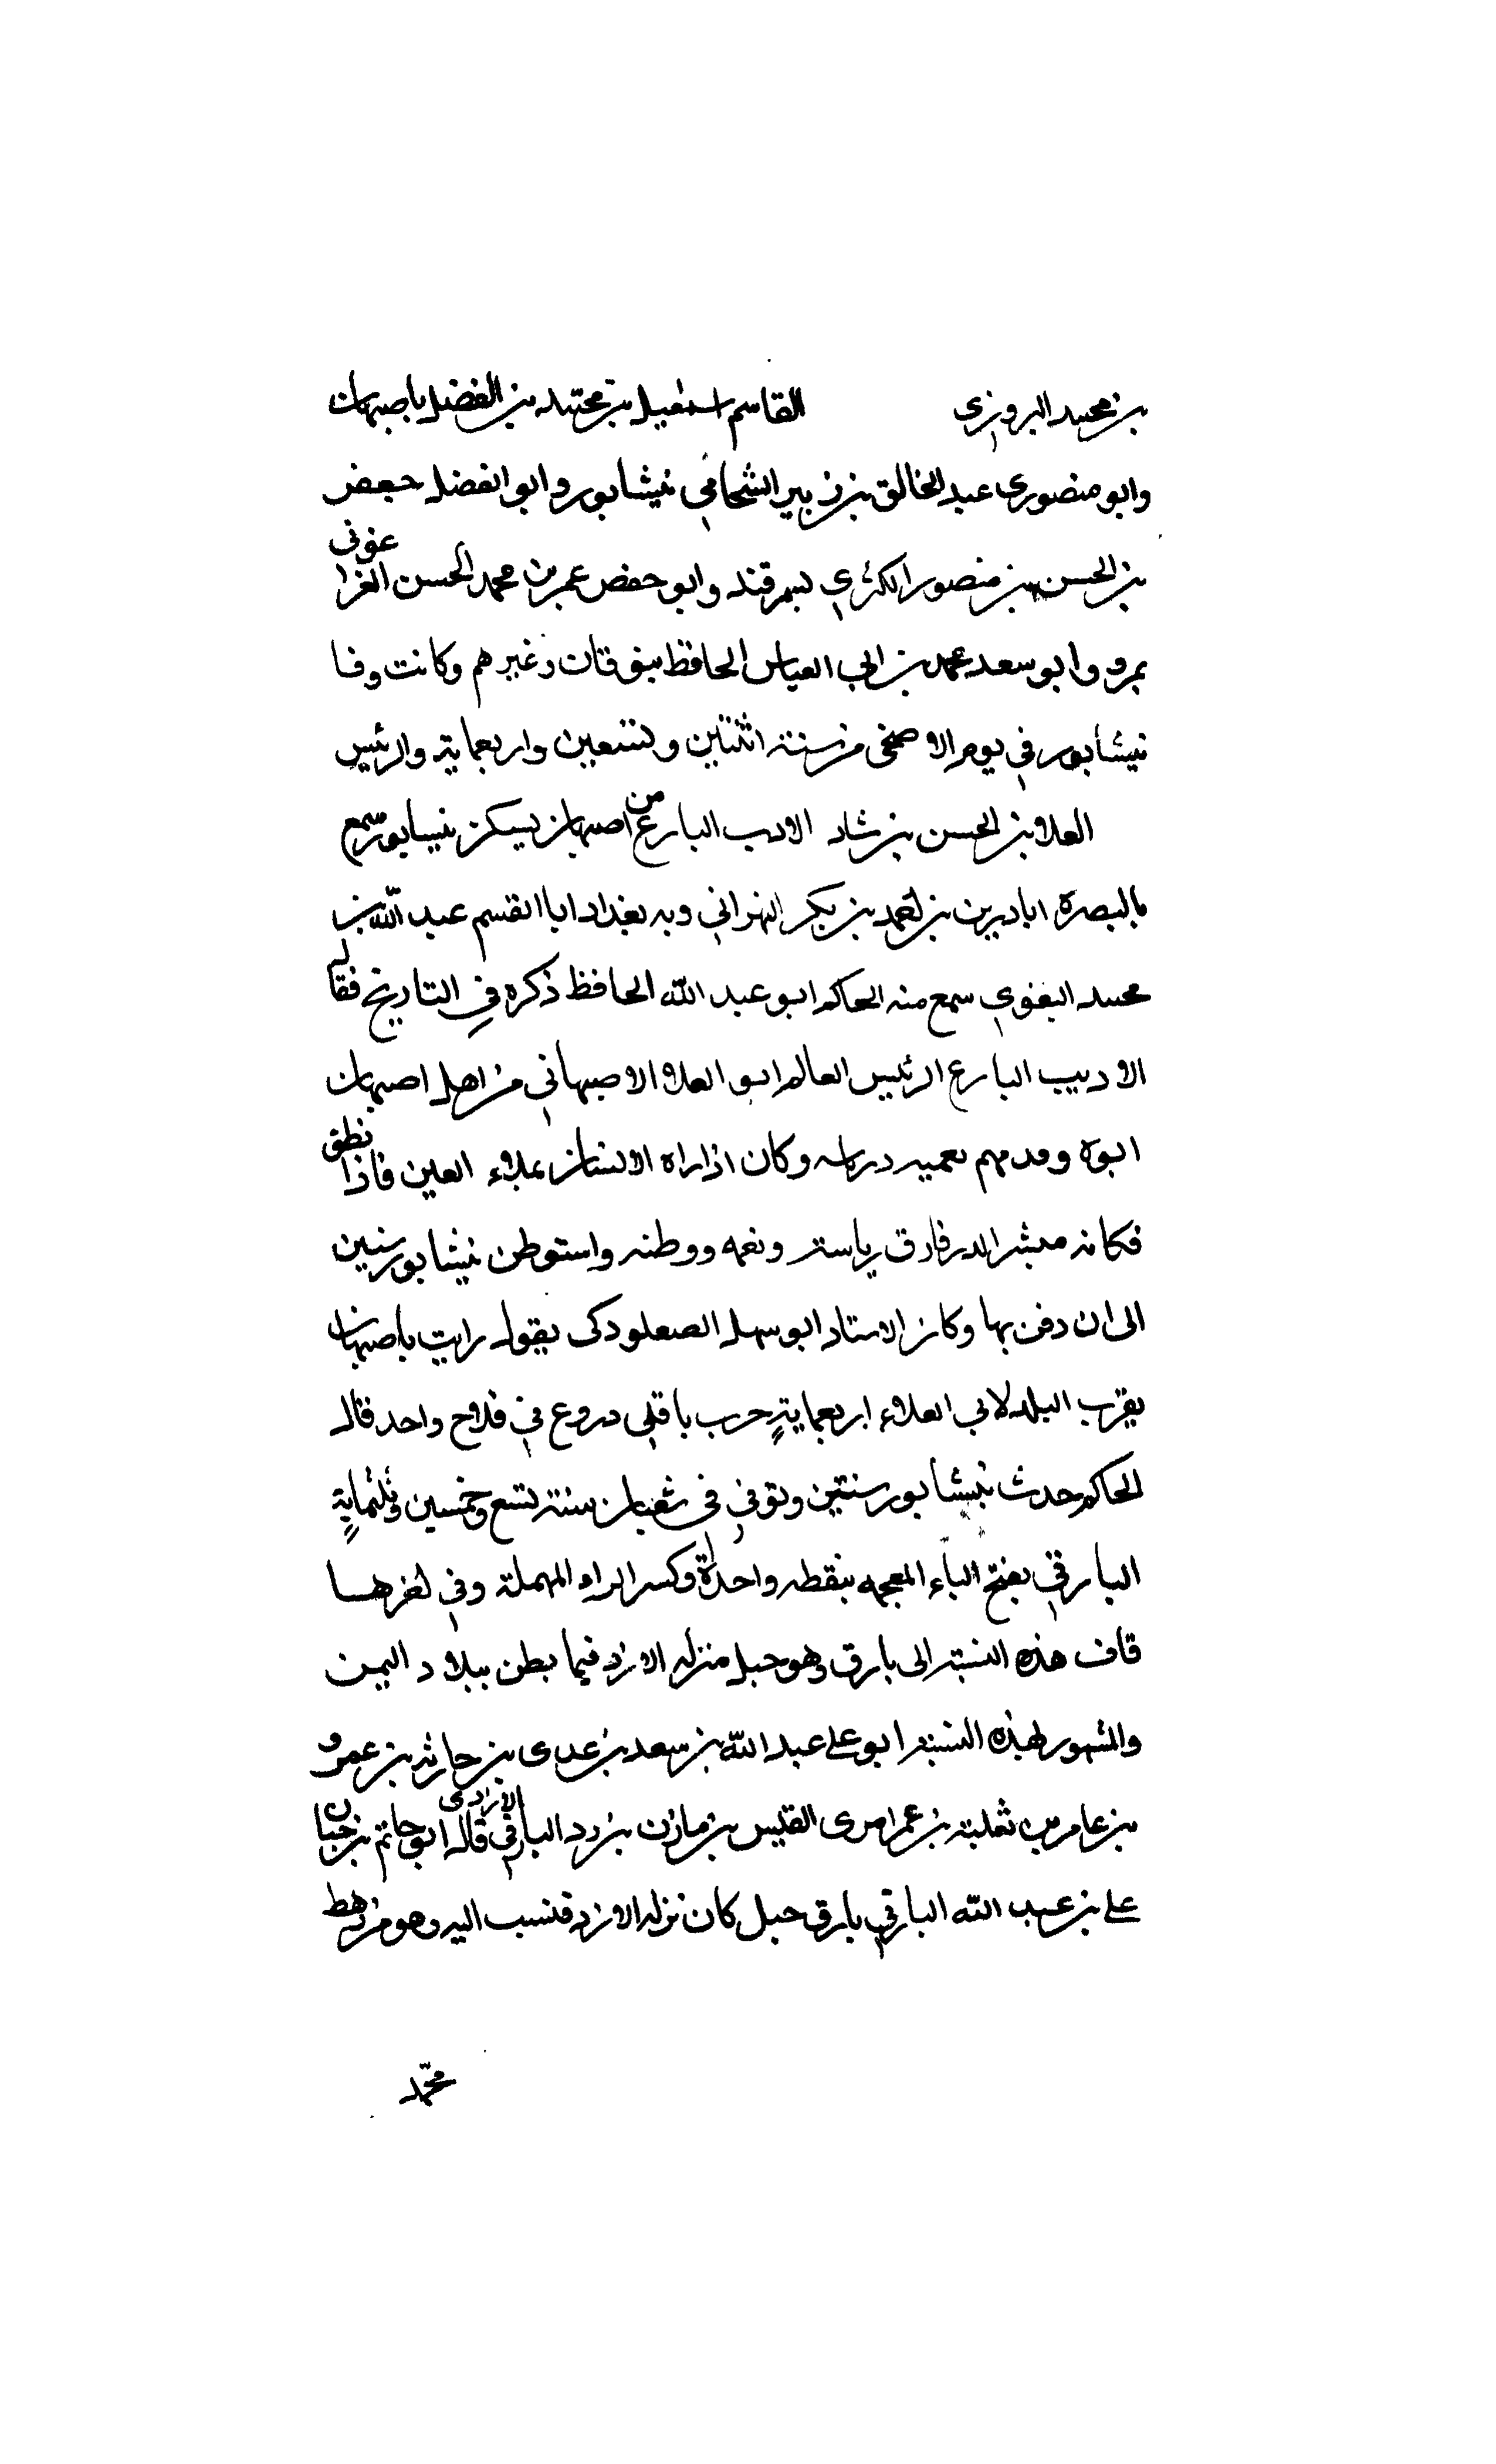 بن محمد البروزي القاسم اسمعيل بن محمد بن الفضل باصبهان
وابو منصوري عبد الخالق بن زبير الشحامي نيشابور وابو الفضل جعفر
بن الحسن بن منصور الكثري بسمرقند وابو حفص عمر بن محمد الحسن الفرا عوني
بمرو وابو سعد محمد بن ابي العباس الحافظ بنوقان وغيرهم وكانت وفا
نيشابور في يوم الاضحى من سنة اثنتين وتسعين واربعماية والرئيس
العلا بن الحسن بن شاد الاديب البارع من اصبهان يسكن نيسابور سمع
بالبصرة ابا دير بن محمد بن بكر الهزاني وبه بغداد ابا القسم عبد الله بن
محمد البغوي سمع منه الحاكم ابو عبد الله الحافظ ذكره في التاريخ فقال
الاديب البارع الرئيس العالم ابو العلا الاصبهاني من اهل اصبهان
ابوه وكان اذا راه الانسان بملاء العين فاذا نطق
فكانه فارق رياسته ونعمه ووطنه واستوطن نيشابور سنين
الى ان دفن بها وكان الاستاد ابو سهل الصعلوكى يقول رايت باصبهان
بقرب البلد لابي العلاء اربعماية باقلى في فلاح واحد قال
الحاكم حدث نيشابور سنتين وتوفي في شعبان سنة تسع وخمسين وثلثماية
البارقي بفتح الباء المعجمه بنقطه واحدة وكسر الراء المهملة وفي اخرها
قاف هذه النسبة الى بارق وهو جبل منزله الازد فيما بطن ببلاد اليمن
والمشهور بهذه النسبه ابو علي عبد الله بن سعد بن عدى بن حارثه بن عمرو
بن عامر بن ثعلبة بن عمر امرى القيس بن مازن بن زد البارقي الازدى قال ابو حاتم بن حبان
علي بن عبد الله البارقي بارق جبل كان نزله الازد فنسب اليه وهو من رهط
محمد